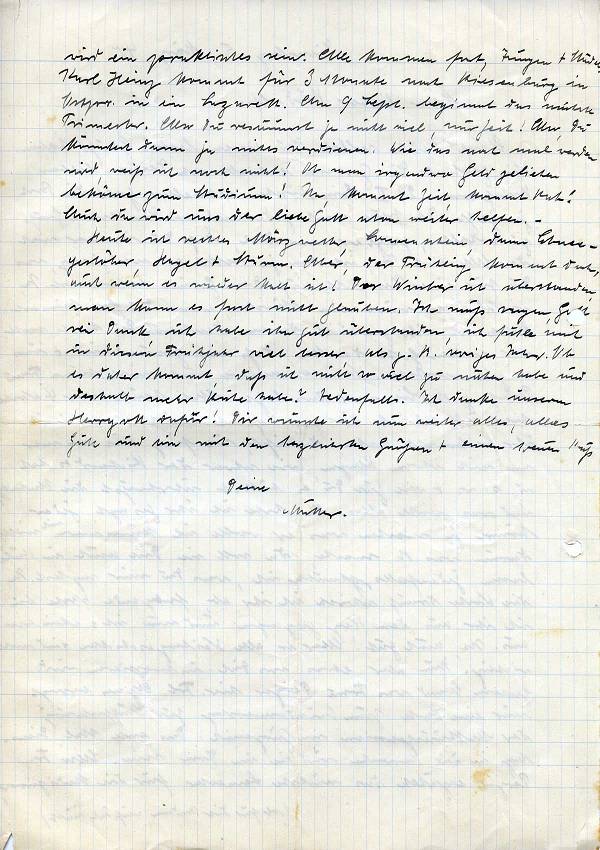 wird ein praktisches sein. Alle kommen fort, Jungen + Mädel.
Karl Heinz kommt für 3 Monate nach Riesenburg in
Ostpr. in ein Lazarett. Am 9 Sept. beginnt das nächste
Trimester. Aber Du versäumst ja nicht viel, nur Zeit! Aber Du
könntest dann ja nichts verdienen. Wie das noch mal werden
wird weiß ich noch nicht! Ob man irgendwo Geld geliehen
bekäme zum Studium! Na, kommt Zeit, kommt Rat!
Auch da wird uns der liebe Gott schon weiter helfen. –
Heute ist rechtes Märzwetter, Sonnenschein, dann Schnee-
gestöber Hagel + Sturm. Aber, der Frühling kommt doch,
auch wenn es wieder kalt ist! Der Winter ist überstanden,
man kann es fast nicht glauben. Ich muß sagen, Gott
sei Danke ich habe ihn gut überstanden, ich fühle mich
in diesem Frühjahr viel besser als z. B. voriges Jahr. Ob
es daher kommt, daß ich nicht so viel zu nähen habe und
deshalb mehr Ruhe habe? Jedenfalls. Ich danke unserem
Herrgott dafür! Dir wünsche ich nun weiter alles, alles
Gute und bin mit den herzlichsten Grüßen + einem Kuß
Deine
Mutter.